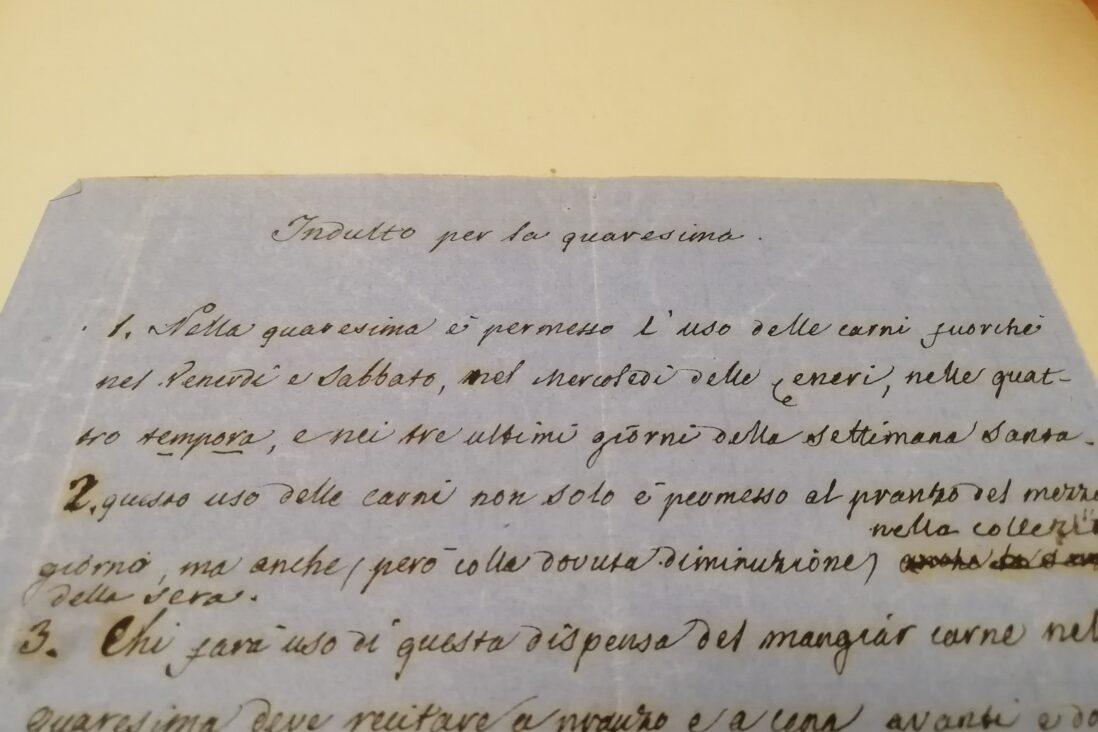 Indulto per la quaresima.
1. Nella quaresima è permesso l'uso delle carni fuorchè
nel Venerdì e Sabbato, nel Mercoledì delle Ceneri, nelle quat-
tro tempora, e nei tre ultimi giorni della settimana Santa.
2. questo uso delle carni non solo è permesso al pranzo del mezzo
nella
giorno, ma anche (però colla dovuta diminuzione)
della sera.
3. Chi farà uso di questa dispensa del mangiar carne nel
quaresima deve recitare a pranzo e a cena avanti e do